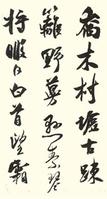 喬木村墟古疎
籬野蔓懸素琴
將暇日白首望霜